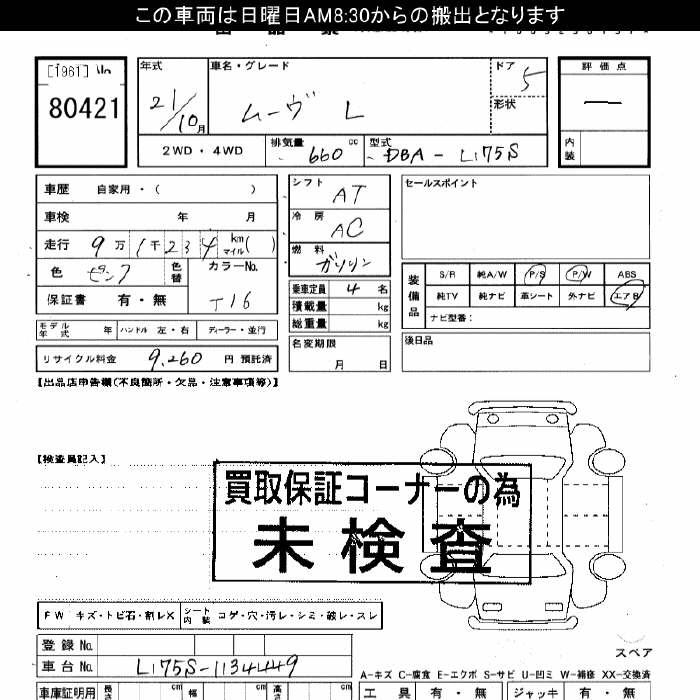 この車両は日曜日AM8:30からの搬出となります
[1961] No
80421
年式 21/10月
車名・グレード ムーヴ L
ドア 5
形状
評価点 —
内装
2WD・4WD
排気量 660 cc
型式 DBA-L175S
車歴 自家用・( )
車検 年 月
走行 9万1千234 km マイル( )
色 ピンク 色替
カラーNo. T16
保証書 有・無
シフト AT
冷房 AC
燃料 ガソリン
セールスポイント
乗車定員 4名
積載量 kg
総重量 kg
装備品
S/R 純A/W P/S P/W ABS
純TV 純ナビ 革シート 外ナビ エアB
ナビ型番:
モデル年式 年 ハンドル 左・右 ディーラー・並行
名変期限 月 日
後日品
リサイクル料金 9,260 円 預託済
【出品店申告欄(不良箇所・欠品・注意事項等)】
【検査員記入】
買取保証コーナーの為
未検査
FW キズ・トビ石・割レX
シート内装 コゲ・穴・汚レ・シミ・破レ・スレ
登録No.
車台No. L175S-1134449
スペア
A-キズ C-腐食 E-エクボ S-サビ U-凹ミ W-補修 XX-交換済
車庫証明用 長さ cm 幅 cm 高さ cm
工具 有・無 ジャッキ 有・無